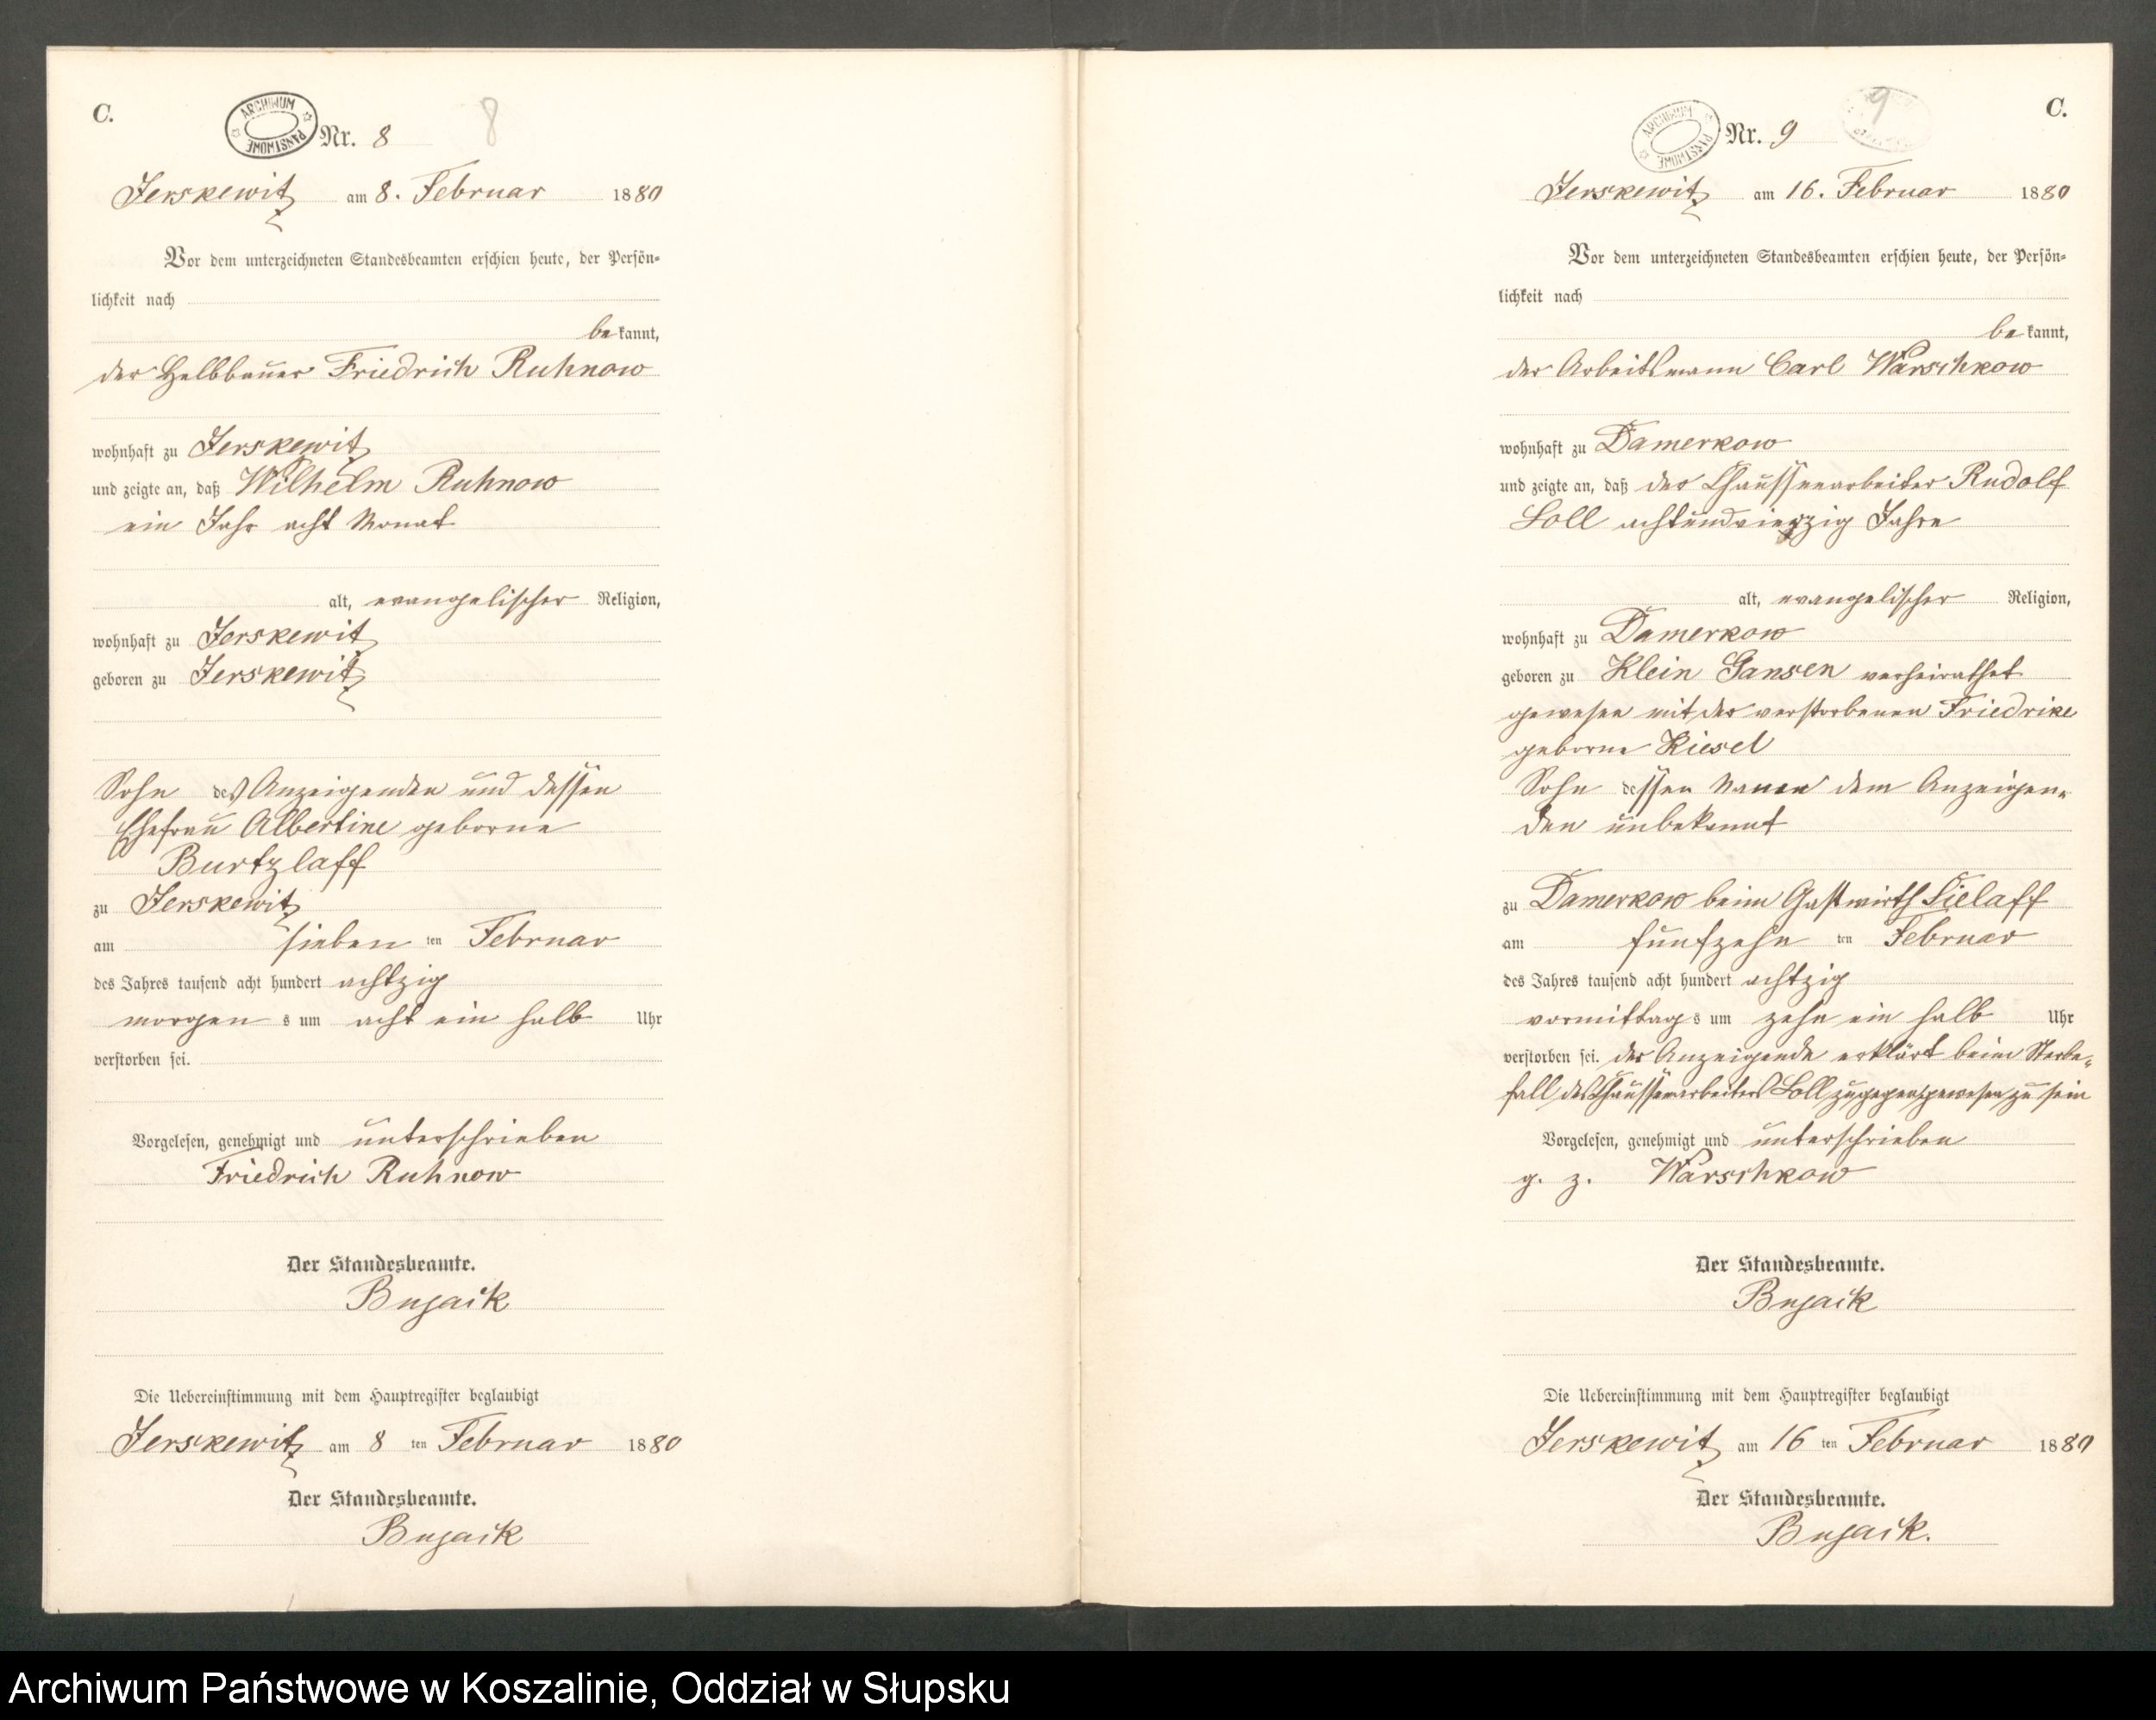 C.
ARCHIWUM PAŃSTWOWE
Nr. 8
8
Jerskewitz am 8. Februar 1880
Vor dem unterzeichneten Standesbeamten erschien heute, der Persön-
lichkeit nach
bekannt,
der Halbbauer Friedrich Ruhnow
wohnhaft zu Jerskewitz
und zeigte an, daß Wilhelm Ruhnow
ein Jahr acht Monat
alt, evangelischer Religion,
wohnhaft zu Jerskewitz
geboren zu Jerskewitz
Sohn des Anzeigenden und dessen
Ehefrau Albertine geborne
Burtzlaff
zu Jerskewitz
am sieben ten Februar
des Jahres tausend acht hundert achtzig
morgens um acht ein halb Uhr
verstorben sei.
Vorgelesen, genehmigt und unterschrieben
Friedrich Ruhnow
Der Standesbeamte.
Bujack
Die Uebereinstimmung mit dem Hauptregister beglaubigt
Jerskewitz am 8 ten Februar 1880
Der Standesbeamte.
Bujack
C.
ARCHIWUM PAŃSTWOWE
Nr. 9
9
Jerskewitz am 16. Februar 1880
Vor dem unterzeichneten Standesbeamten erschien heute, der Persön-
lichkeit nach
bekannt,
der Arbeitsmann Carl Warschkow
wohnhaft zu Damerkow
und zeigte an, daß der Chausseearbeiter Rudolf
Loll achtundvierzig Jahre
alt, evangelischer Religion,
wohnhaft zu Damerkow
geboren zu Klein Gansen verheirathet
gewesen mit der verstorbenen Friedrike
geborne Kiesel
Sohn dessen Namen dem Anzeigen-
den unbekannt
zu Damerkow beim Gastwirth Sielaff
am funfzehn ten Februar
des Jahres tausend acht hundert achtzig
vormittags um zehn ein halb Uhr
verstorben sei. der Anzeigende erklärt beim Sterbe-
fall des Chausseearbeiters Loll zugegen gewesen zu sein
Vorgelesen, genehmigt und unterschrieben
g. z. Warschkow
Der Standesbeamte.
Bujack
Die Uebereinstimmung mit dem Hauptregister beglaubigt
Jerskewitz am 16 ten Februar 1880
Der Standesbeamte.
Bujack.
Archiwum Państwowe w Koszalinie, Oddział w Słupsku